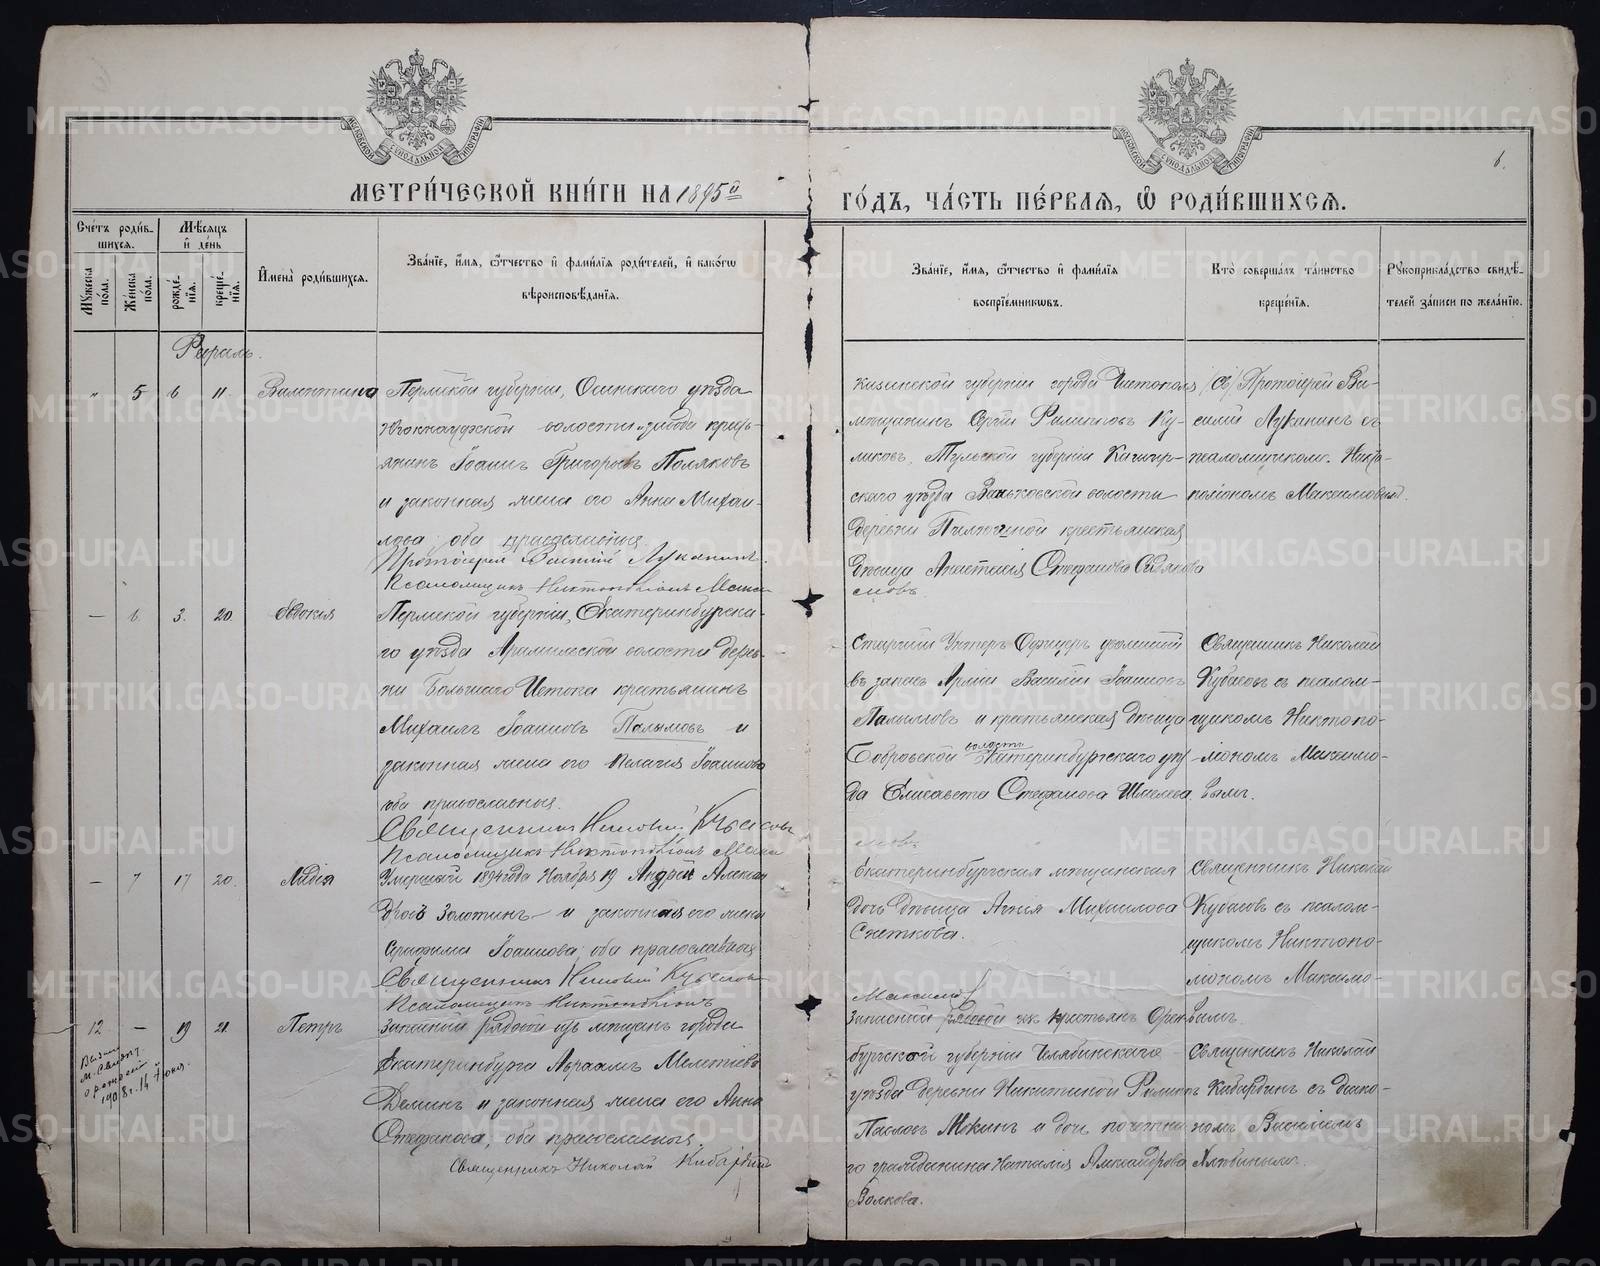 МЕТРИ́ЧЕСКОЙ КНИ́ГИ НА 1895й ГО́ДЪ, ЧА́СТЬ ПЕ́РВАЯ, Ѽ РОДИ́ВШИХСЯ.
6.
МОСКОВСКОЙ СИНОДАЛЬНОЙ ТИПОГРАФІИ
МОСКОВСКОЙ СИНОДАЛЬНОЙ ТИПОГРАФІИ
Сче́тъ роди́в-
шихся.
Му́жеска по́ла.
Же́нска по́ла.
Мѣ́сяцъ
и де́нь
рожде́-
нїя.
креще́-
нїя.
И̑мена̀ роди́вшихся.
Зва́нїе, и́мя, ѻ҆́тчество и фами́лїя роди́телей, и како́гѡ
вѣроисповѣ́данїя.
Зва́нїе, и́мя, ѻ҆́тчество и фами́лїя
воспрїе́мникѡвъ.
Кто̀ соверша́лъ та́инство
креще́нїя.
Рꙋкоприкла́дство свидѣ́-
телей за́писи по жела́нїю.
5 6 11. Валентина
Пермской губерніи, Осинскаго уѣзда
волости завода кресть-
янинъ Іоаннъ Григорьевъ Поляковъ
и законная жена его Анна Михаи-
лова; оба православные
Протоіерей Василій Луканинъ.
Псаломщикъ Никтополіонъ Макси-
города Чистополя
мѣщанинъ Сергій Филипповъ Ку-
ликовъ. Тульской губерніи
скаго уѣзда волости
деревни крестьянская
дѣвица Анастасія Стефанова
мовъ.
Протоіерей Ва-
силій Луканинъ съ
псаломщикомъ. Никто-
поліономъ Максимовымъ.
— 6. 3. 20. Евдокія
Пермской губерніи, Екатеринбургска-
го уѣзда Арамильской волости дерев-
ни Большаго Истока крестьянинъ
Михаилъ Іоанновъ Палымовъ и
законная жена его Пелагія Іоаннова
оба православные.
Священникъ Николай Кубасовъ
Псаломщикъ Никтополіонъ Макси
Старшій Унтеръ-Офицеръ уволенный
въ запасъ Арміи Василій Іоанновъ
Палымовъ и крестьянская дѣвица
Бобровской волости Екатеринбургскаго уѣз-
да Елисавета Стефанова Шмелева.
мовъ
Священникъ Николай
Кубасовъ съ псалом-
щикомъ Никтопо-
ліономъ Максимо-
вымъ.
— 7 17 20. Лидія
Умершій 1894 года Ноября 19 Андрей Алексан
дровъ Золотинъ и законная его жена
Серафима Іоаннова; оба православные
Священникъ Николай Кубасовъ
Псаломщикъ Никтополіонъ
Екатеринбургская мѣщанская
дочь дѣвица Агнія Михаилова
Снеткова.
Максимовъ
Священникъ Николай
Кубасовъ съ псалом-
щикомъ Никтопо-
ліономъ Максимо-
вымъ
12 — 19 21. Петръ
1908 г. 14 Іюня.
Запасный рядовой изъ мѣщанъ города
Екатеринбурга Авраамъ Мелетіевъ
Деминъ и законная жена его Анна
Стефанова, оба православные.
Священникъ Николай Кибардинъ
Запасный рядовой изъ крестьянъ Орен-
бургской губерніи Челябинскаго
уѣзда деревни Никитиной
Павловъ Мокинъ и дочь почетна-
го гражданина Наталія Александрова
Волкова.
Священникъ Николай
Кибардинъ съ діако-
номъ Василіемъ
METRIKI.GASO-URAL.RU